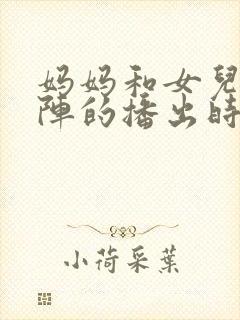 妈妈和女兒
陣的播出時
小荷采葉